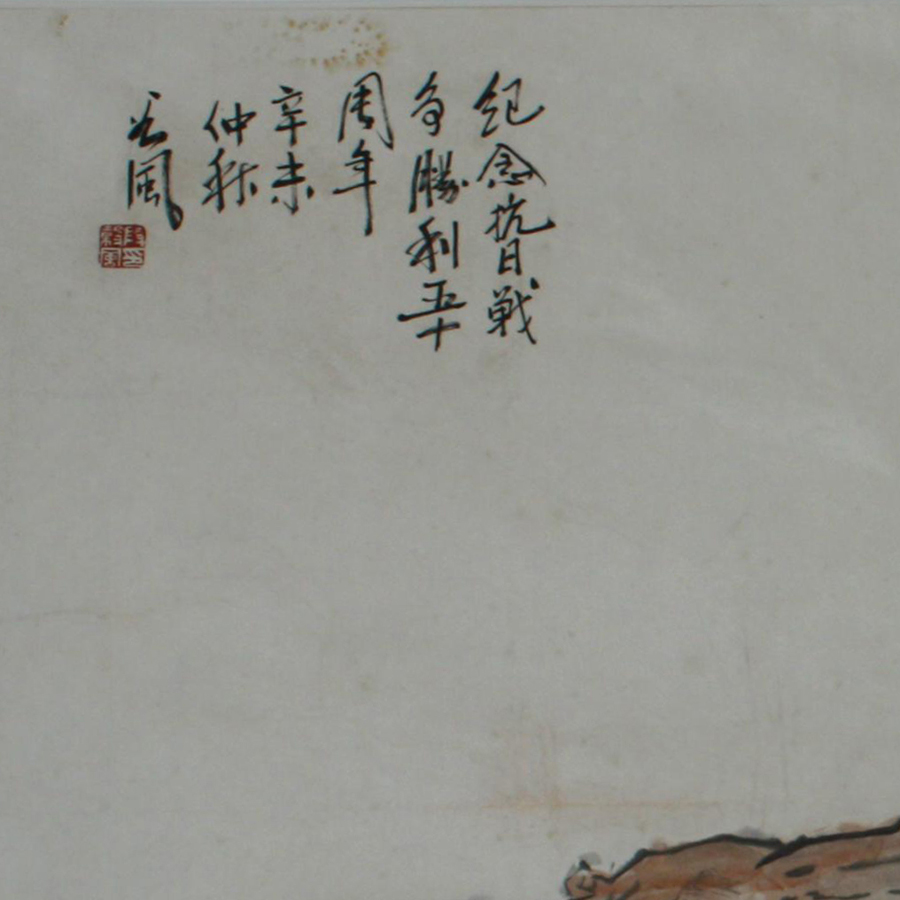 纪念抗日战
争勝利五十
周年
辛未
仲秋
谷風